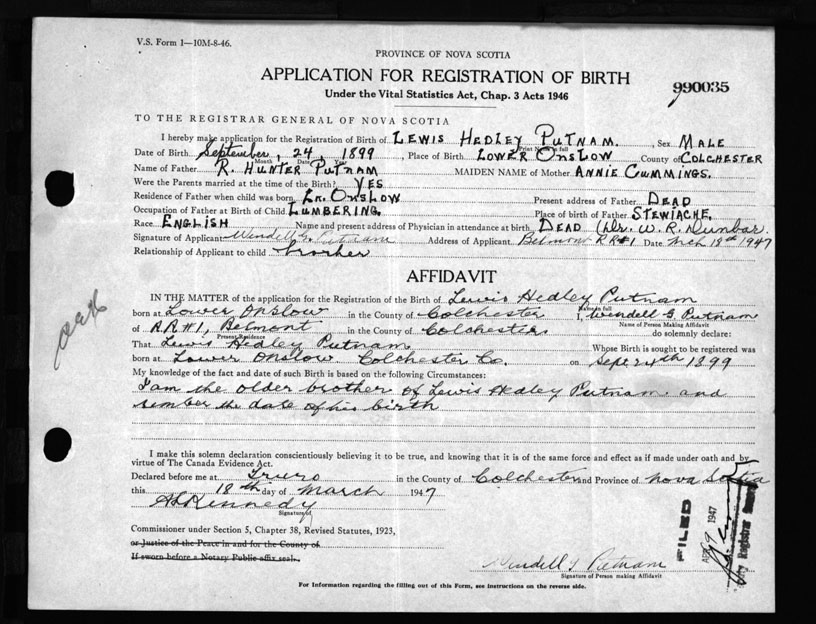 V.S. Form 1—10M-8-46.
PROVINCE OF NOVA SCOTIA
APPLICATION FOR REGISTRATION OF BIRTH
990035
Under the Vital Statistics Act, Chap. 3 Acts 1946
TO THE REGISTRAR GENERAL OF NOVA SCOTIA
I hereby make application for the Registration of Birth of LEWIS HEDLEY PUTNAM. , Sex MALE
Print Name in full
Date of Birth September, 24, 1899 , Place of Birth LOWER ONSLOW County of COLCHESTER
Month Date Year
Name of Father R. HUNTER PUTNAM MAIDEN NAME of Mother ANNIE CUMMINGS.
Were the Parents married at the time of Birth? YES
Residence of Father when child was born Lr. ONSLOW Present address of Father DEAD
Occupation of Father at Birth of Child LUMBERING. Place of birth of Father STEWIACHE.
Race ENGLISH Name and present address of Physician in attendance at birth DEAD (Dr. W. R. Dunbar.
Signature of Applicant Wendell G. Putnam Address of Applicant Belmont RR#1 Date Mch 18th 1947
Relationship of Applicant to child brother
AFFIDAVIT
IN THE MATTER of the application for the Registration of the Birth of Lewis Hedley Putnam
Name in full
born at Lower Onslow in the County of Colchester I, Wendell G Putnam
Name of Person Making Affidavit
of R.R#1, Belmont in the County of Colchester do solemnly declare:
Present Residence
That Lewis Hedley Putnam Whose Birth is sought to be registered was
born at Lower Onslow Colchester Co. on Sept 24th 1899
My knowledge of the fact and date of such Birth is based on the following Circumstances:
I am the older brother of Lewis Hedley Putnam and
rember the date of his birth
I make this solemn declaration conscientiously believing it to be true, and knowing that it is of the same force and effect as if made under oath and by
virtue of The Canada Evidence Act.
Declared before me at Truro in the County of Colchester and Province of Nova Scotia
this 18th day of March 1947
A L Kennedy
Signature of
Commissioner under Section 5, Chapter 38, Revised Statutes, 1923,
or Justice of the Peace in and for the County of
If sworn before a Notary Public affix seal.
FILED
1947
Registrar
Wendell G Putnam
Signature of Person making Affidavit
For Information regarding the filling out of this Form, see instructions on the reverse side.